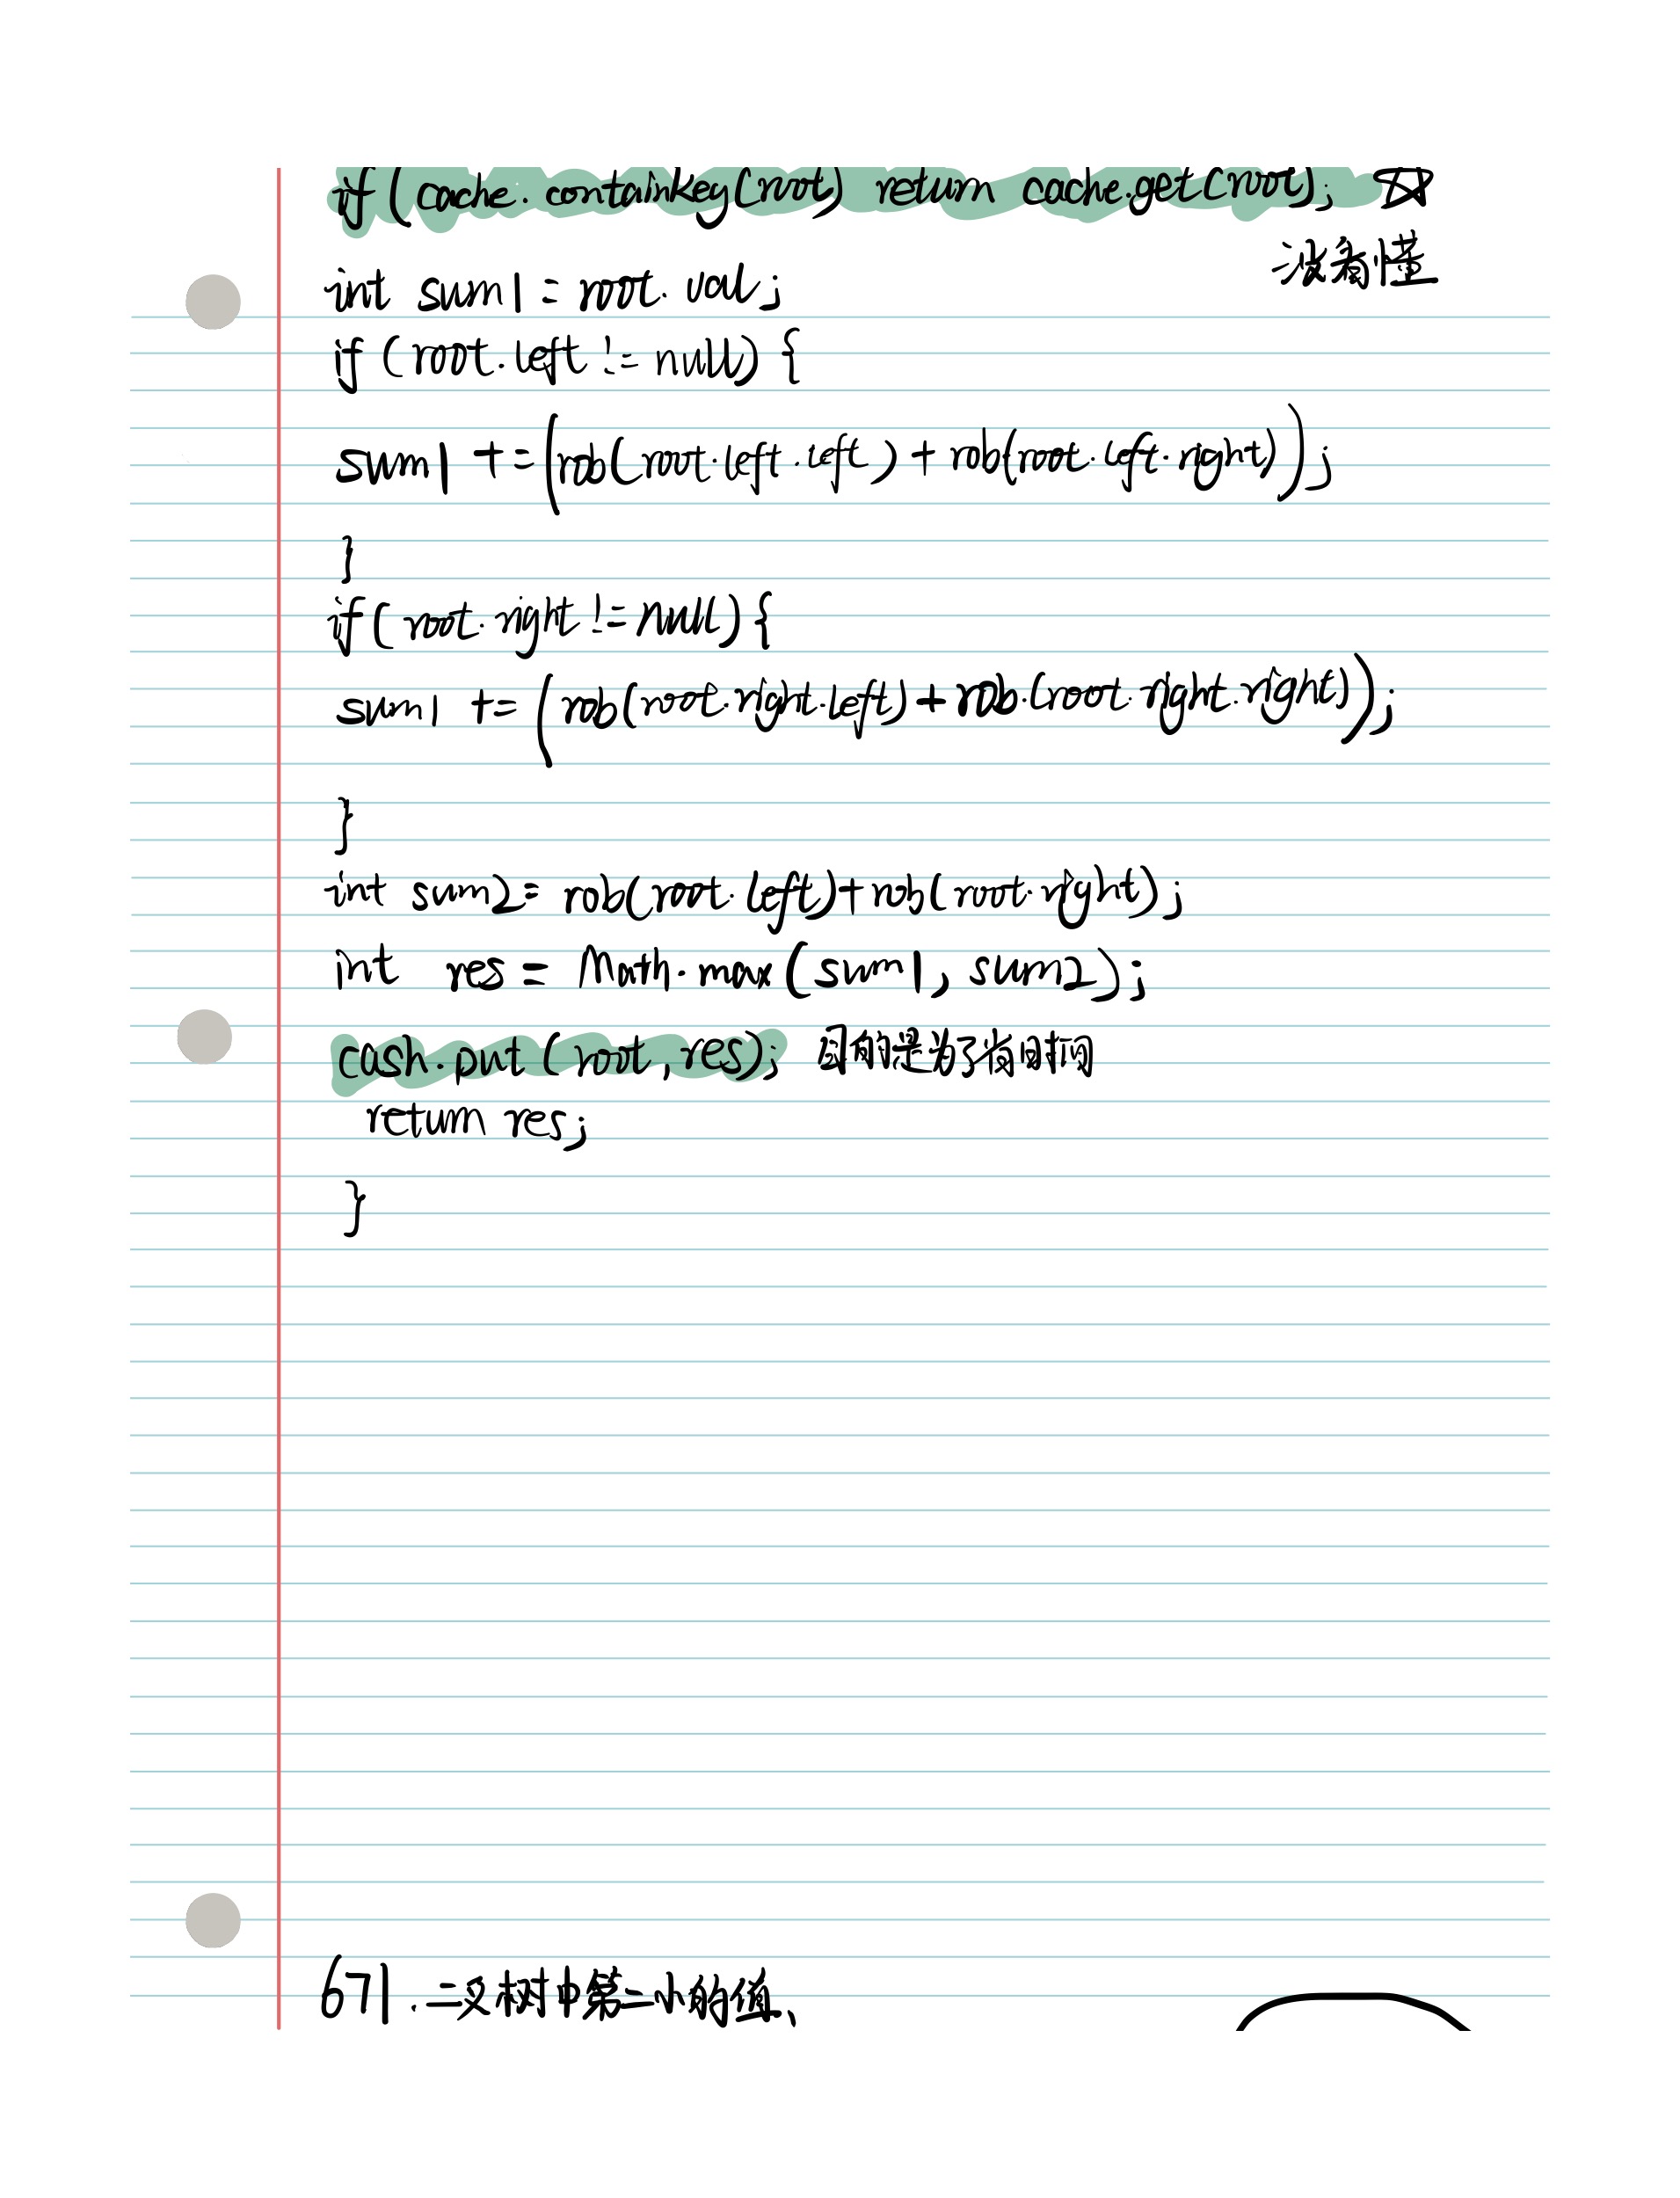 if (cache.containKey(root) return cache.get(root);
没看懂
int sum1 = root.val;
if (root.left != null) {
sum1 += (rob(root.left.left) + rob(root.left.right));
}
if (root.right != null) {
sum1 += (rob(root.right.left) + rob.(root.right.right));
}
int sum2 = rob(root.left)+rob(root.right);
int res = Math.max(sum1, sum2);
cash.put(root,res); 目的是为了省时间
return res;
}
671.二叉树中第二小的值、